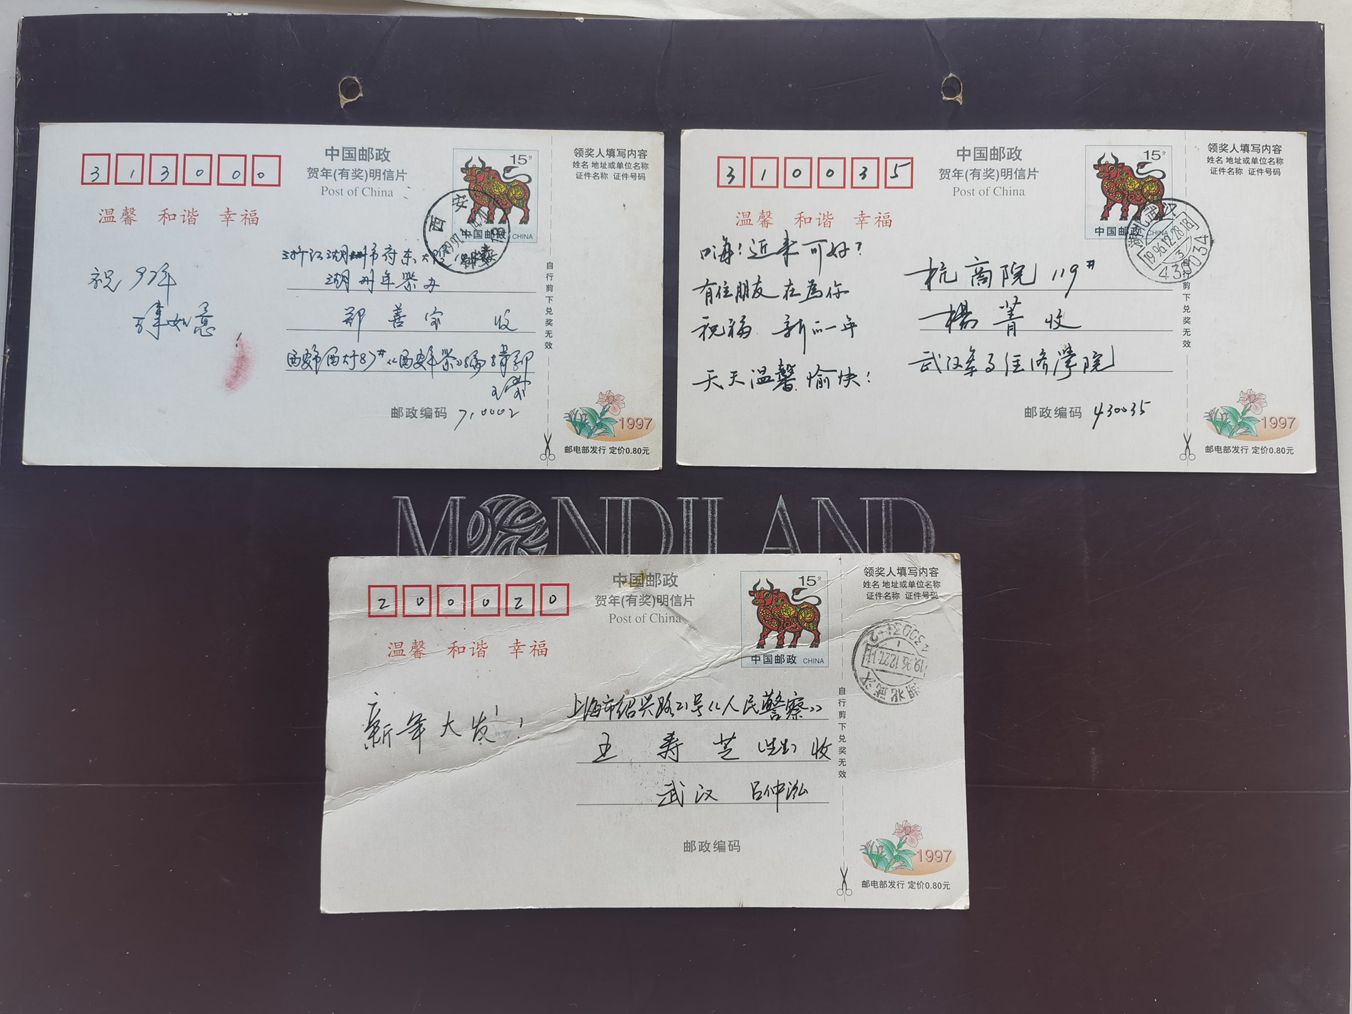 313000
中国邮政
贺年(有奖)明信片
Post of China
15分
中国邮政 CHINA
西安
温馨 和谐 幸福
祝97年
事如意
湖州集邮
郑善宝 收
邮政编码 710002
领奖人填写内容
姓名 地址或单位名称
证件名称 证件号码
自行剪下兑奖无效
1997
邮电部发行 定价0.80元
310035
中国邮政
贺年(有奖)明信片
Post of China
15分
中国邮政 CHINA
430034
温馨 和谐 幸福
嗨!近来可好?
有位朋友在为你
祝福 新的一年
天天温馨愉快!
杭商院 119#
杨菁 收
武汉 经济学院
邮政编码 430035
领奖人填写内容
姓名 地址或单位名称
证件名称 证件号码
自行剪下兑奖无效
1997
邮电部发行 定价0.80元
MONDILAND
200020
中国邮政
贺年(有奖)明信片
Post of China
15分
中国邮政 CHINA
湖北武汉
温馨 和谐 幸福
新年大发!
上海市绍兴路21号《人民警察》
王寿芝 收
武汉 吕仲泓
邮政编码
领奖人填写内容
姓名 地址或单位名称
证件名称 证件号码
自行剪下兑奖无效
1997
邮电部发行 定价0.80元